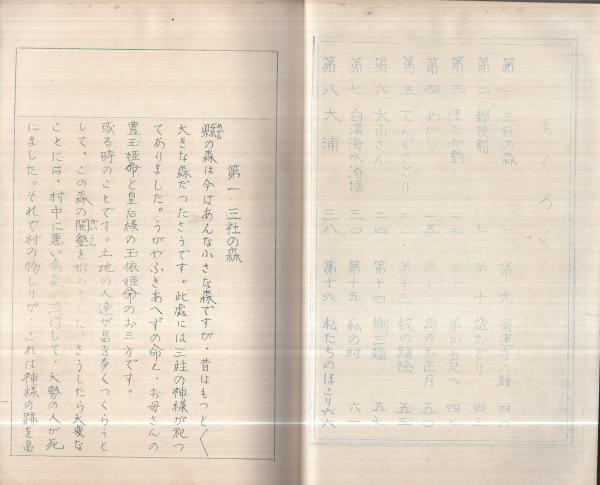 もくろく
第一 三社の森
第二 郵便船 七
第三 またか釣 一二
第四 めがし 一五
第五 てんぐさとり 二〇
第六 大山さん 二四
第七 白濱海水浴場 三〇
第八 大浦 三八
第九
第十 盆おどり 四三
から兄へ 四七
のお正月 五〇
第十三 蚊の驅除 五三
第十四 蜊三題 五七
第十五 私の村 六一
第十六 私たちのほこり 六六
第一 三社の森
縣の森は今はあんな小さな森ですが、昔はもつと〱
大きな森だつたさうです。此處には三柱の神樣が祀つ
てありました。うがやふきあへずの命と、お母さんの
豊玉姫命と皇后樣の玉依姫命のお三方です。
或る時のことです。土地の人達が畠を多くつくらうと
して、この森の開墾を始めました。さうしたら大變な
ことには、村中に悪い病氣が流行して、大勢の人が死
にました。それで村の物しりが、これは神樣の跡を畠